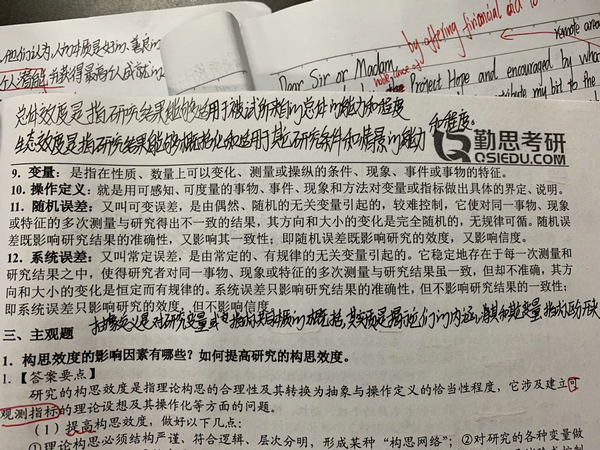 他们认为,人的本质是好的、善良的
个人潜能,并获得最高个人成就的
by offering financial aid to
remote area
Dear Sir or Madam
Project Hope and encouraged by who
tribute my bit to the
总体效度是指研究结果能够适用于被试所来自的总体的能力和程度
生态效度是指研究结果能够概括化和适用于其他研究条件和情景的能力和程度。
勤思考研
QSIEDU.COM
9. 变量:是指在性质、数量上可以变化、测量或操纵的条件、现象、事件或事物的特征。
10. 操作定义:就是用可感知、可度量的事物、事件、现象和方法对变量或指标做出具体的界定、说明。
11. 随机误差:又叫可变误差,是由偶然、随机的无关变量引起的,较难控制,它使对同一事物、现象
或特征的多次测量与研究得出不一致的结果,其方向和大小的变化是完全随机的,无规律可循。随机误
差既影响研究结果的准确性,又影响其一致性;即随机误差既影响研究的效度,又影响信度。
12. 系统误差:又叫常定误差,是由常定的、有规律的无关变量引起的。它稳定地存在于每一次测量和
研究结果之中,使得研究者对同一事物、现象或特征的多次测量与研究结果虽一致,但却不准确,其方
向和大小的变化是恒定而有规律的。系统误差只影响研究结果的准确性,但不影响研究结果的一致性;
即系统误差只影响研究的效度,但不影响信度。
抽象定义是对研究变量或指标共同本质的概括,其实质是揭示它们的内涵,将其和其他变量
三、主观题
1. 构思效度的影响因素有哪些?如何提高研究的构思效度。
1. 【答案要点】
研究的构思效度是指理论构思的合理性及其转换为抽象与操作定义的恰当性程度,它涉及建立可
观测指标的理论设想及其操作化等方面的问题。
(1)提高构思效度,做好以下几点:
①理论构思必须结构严谨、符合逻辑、层次分明,形成某种“构思网络”;②对研究的各种变量做